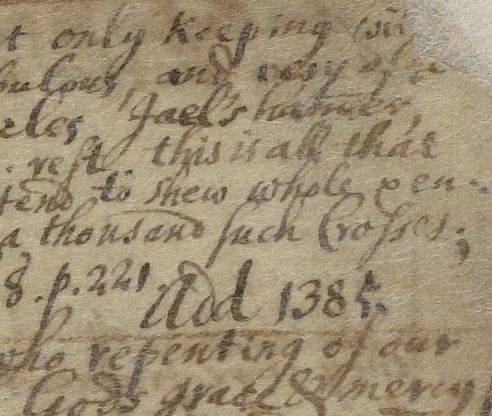 t only keeping
bulous, and very ofte
cles Jael's hammer,
rest this is all that
tend to shew whole pen-
a thousand such Crosses;
8. p. 221.
Add 1385.
who repenting of our
Gods grace & mercy